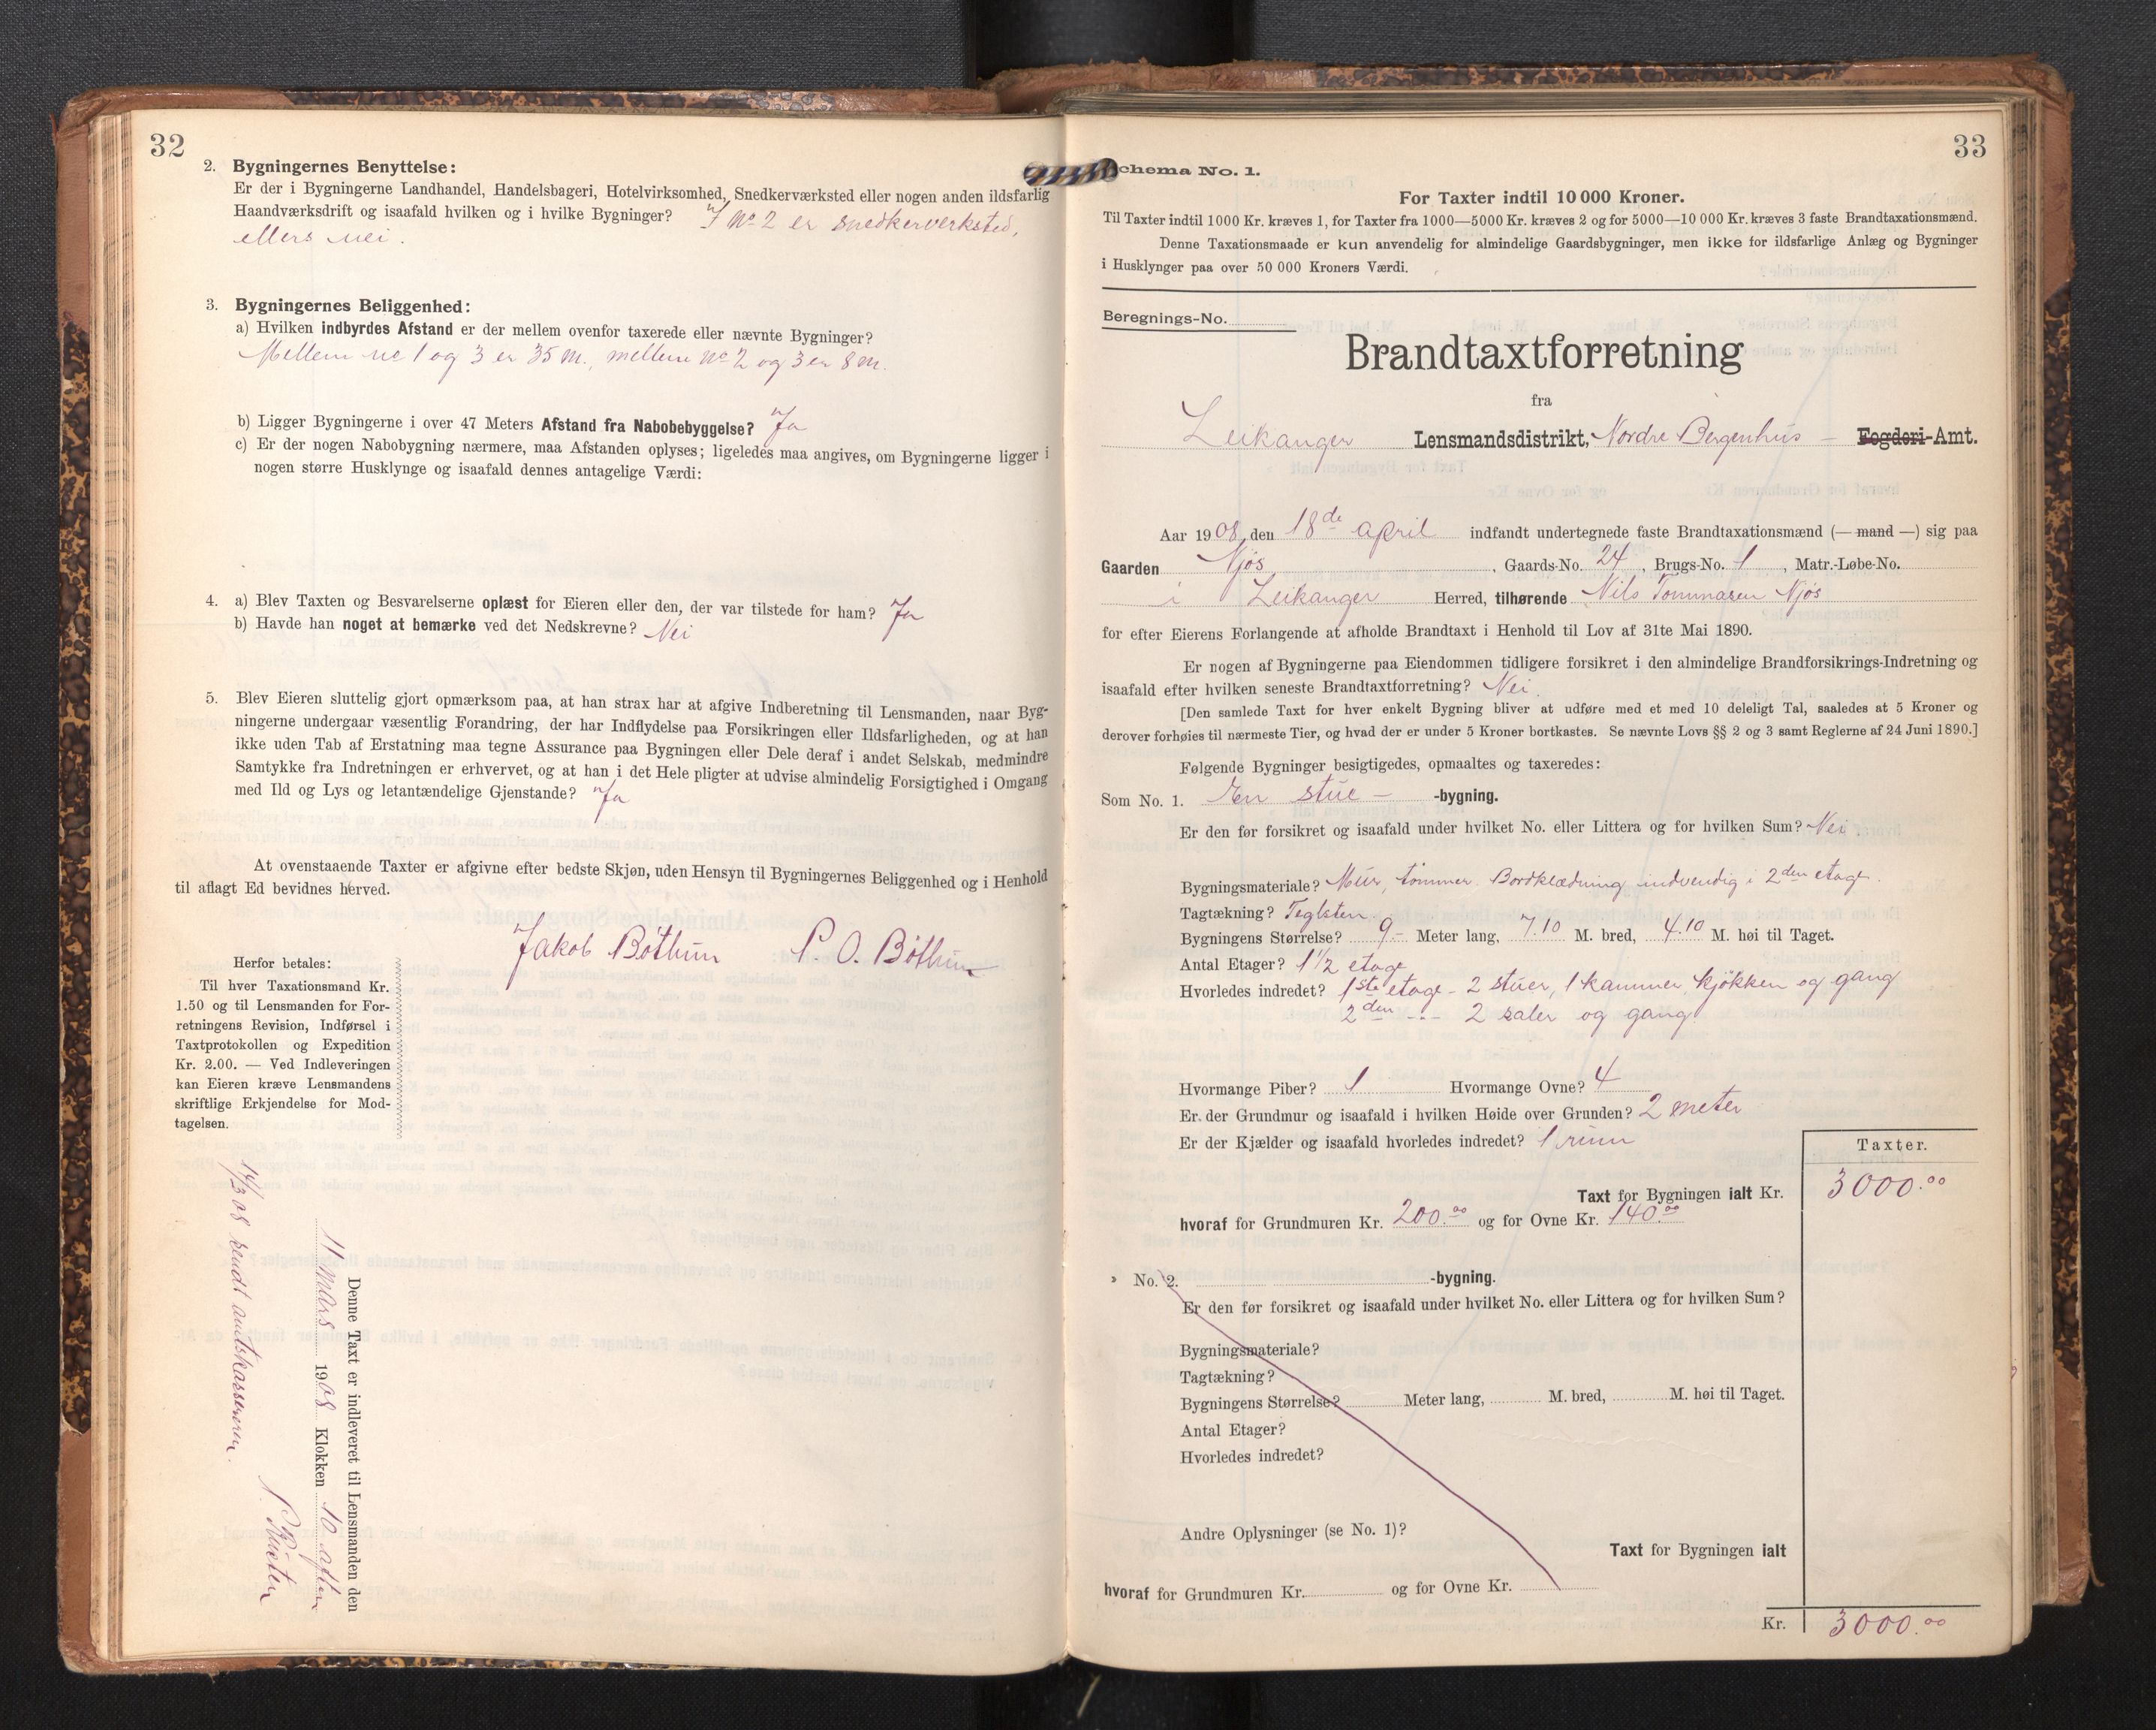 32
2. Bygningernes Benyttelse:
Er der i Bygningerne Landhandel, Handelsbageri, Hotelvirksomhed, Snedkerværksted eller nogen anden ildsfarlig
Haandværksdrift og isaafald hvilken og i hvilke Bygninger? I No 2 er snedkerverksted,
ellers nei.
3. Bygningernes Beliggenhed:
a) Hvilken indbyrdes Afstand er der mellem ovenfor taxerede eller nævnte Bygninger?
Mellem no 1 og 3 er 35 m., mellem No 2 og 3 er 8 m.
b) Ligger Bygningerne i over 47 Meters Afstand fra Nabobebyggelse? Ja
c) Er der nogen Nabobygning nærmere, maa Afstanden oplyses; ligeledes maa angives, om Bygningerne ligger i
nogen større Husklynge og isaafald dennes antagelige Værdi:
4. a) Blev Taxten og Besvarelserne oplæst for Eieren eller den, der var tilstede for ham? Ja
b) Havde han noget at bemærke ved det Nedskrevne? Nei
5. Blev Eieren sluttelig gjort opmærksom paa, at han strax har at afgive Indberetning til Lensmanden, naar Byg-
ningerne undergaar væsentlig Forandring, der har Indflydelse paa Forsikringen eller Ildsfarligheden, og at han
ikke uden Tab af Erstatning maa tegne Assurance paa Bygningen eller Dele deraf i andet Selskab, medmindre
Samtykke fra Indretningen er erhvervet, og at han i det Hele pligter at udvise almindelig Forsigtighed i Omgang
med Ild og Lys og letantændelige Gjenstande? Ja
At ovenstaaende Taxter er afgivne efter bedste Skjøn, uden Hensyn til Bygningernes Beliggenhed og i Henhold
til aflagt Ed bevidnes herved.
Jakob Bøthun P. O. Bøthun
Herfor betales:
Til hver Taxationsmand Kr.
1.50 og til Lensmanden for For-
retningens Revision, Indførsel i
Taxtprotokollen og Expedition
Kr. 2.00. — Ved Indleveringen
kan Eieren kræve Lensmandens
skriftlige Erkjendelse for Mod-
tagelsen.
Denne Taxt er indleveret til Lensmanden den
11 mars 1908 Klokken 10 aften
14/3 08 sendt amtskassereren.
33
Schema No. 1.
For Taxter indtil 10 000 Kroner.
Til Taxter indtil 1000 Kr. kræves 1, for Taxter fra 1000—5000 Kr. kræves 2 og for 5000—10 000 Kr. kræves 3 faste Brandtaxationsmænd.
Denne Taxationsmaade er kun anvendelig for almindelige Gaardsbygninger, men ikke for ildsfarlige Anlæg og Bygninger
i Husklynger paa over 50 000 Kroners Værdi.
Beregnings-No.
Brandtaxtforretning
fra
Leikanger Lensmandsdistrikt, Nordre Bergenhus – Fogderi-Amt.
Aar 1908, den 18de april indfandt undertegnede faste Brandtaxationsmænd (— mand —) sig paa
Gaarden Njøs, Gaards-No. 24, Brugs-No. 1, Matr.-Løbe-No.
i Leikanger Herred, tilhørende Nils Tommasen Njøs
for efter Eierens Forlangende at afholde Brandtaxt i Henhold til Lov af 31te Mai 1890.
Er nogen af Bygningerne paa Eiendommen tidligere forsikret i den almindelige Brandforsikrings-Indretning og
isaafald efter hvilken seneste Brandtaxtforretning? Nei.
[Den samlede Taxt for hver enkelt Bygning bliver at udføre med et med 10 deleligt Tal, saaledes at 5 Kroner og
derover forhøies til nærmeste Tier, og hvad der er under 5 Kroner bortkastes. Se nævnte Lovs §§ 2 og 3 samt Reglerne af 24 Juni 1890.]
Følgende Bygninger besigtigedes, opmaaltes og taxeredes:
Som No. 1. En stue – -bygning.
Er den før forsikret og isaafald under hvilket No. eller Littera og for hvilken Sum? Nei
Bygningsmateriale? Mur, tømmer. Bordklædning indvendig i 2den etage.
Tagtækning? Teglsten
Bygningens Størrelse? 9.- Meter lang, 7.10 M. bred, 4.10 M. høi til Taget.
Antal Etager? 1 1/2 etage
Hvorledes indredet? 1ste etage - 2 stuer, 1 kammer, kjøkken og gang
2den --- 2 saler og gang
Hvormange Piber? 1 Hvormange Ovne? 4
Er der Grundmur og isaafald i hvilken Høide over Grunden? 2 meter
Er der Kjælder og isaafald hvorledes indredet? 1 rum
Taxter.
Taxt for Bygningen ialt Kr. 3000.00
hvoraf for Grundmuren Kr. 200.00 og for Ovne Kr. 140.00
» No. 2. -bygning.
Er den før forsikret og isaafald under hvilket No. eller Littera og for hvilken Sum?
Bygningsmateriale?
Tagtækning?
Bygningens Størrelse? Meter lang, M. bred, M. høi til Taget.
Antal Etager?
Hvorledes indredet?
Andre Oplysninger (se No. 1)?
Taxt for Bygningen ialt
hvoraf for Grundmuren Kr. og for Ovne Kr.
Kr. 3000.00